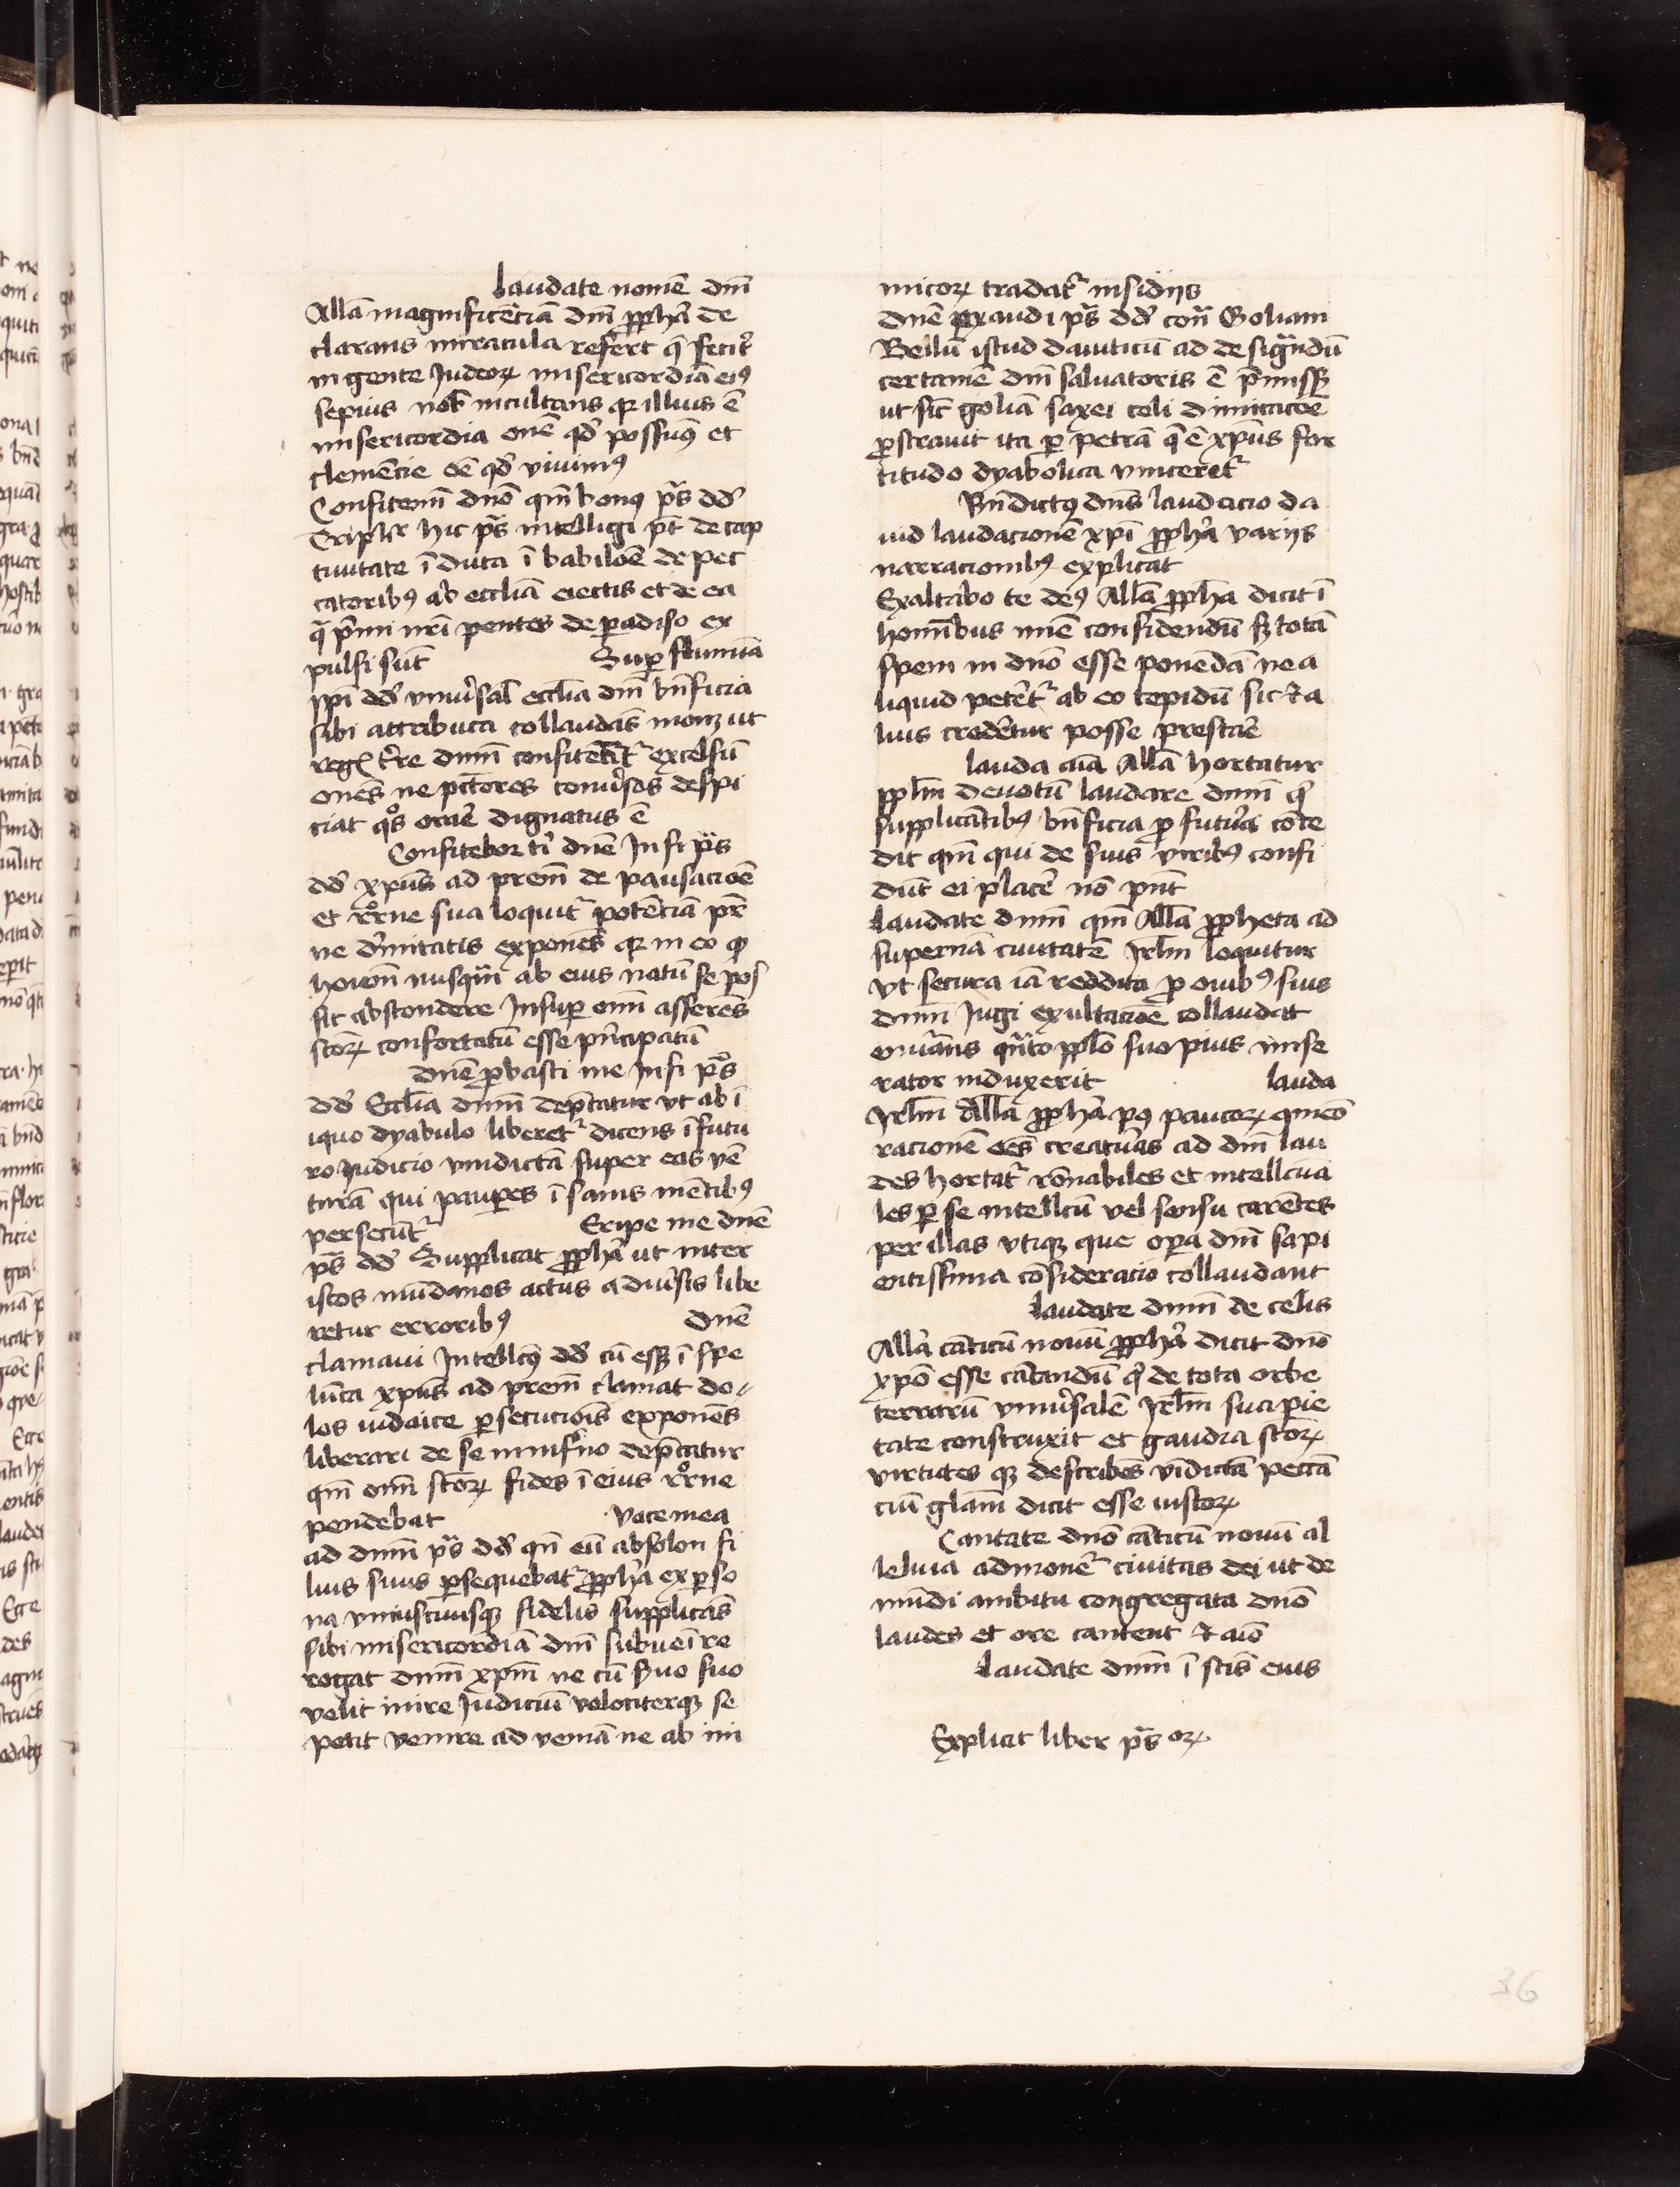 laudate nomē dnī
Allā magnificēciā dnī ꝓphā de
clarans miracula refert q̄ fecit
in gente Judeoꝝ misericordiā eiꝰ
sepius nob inculcans qr illius ē
misericordia onē qd̓ possumꝰ et
clemēcie oē qd̓ viuimꝰ
Confitemī dnō qm̄ bonꝰ pˢs dd̓
Triplʳ hic pˢs intelligi pt̄ de cap
tiuitate ī ducta ī babilōe de pec
catoribꝰ ab eccliā eiectis et de ea
q̄ pͥmi nrī pentes de ꝑadiso ex
pulsi sūt Suꝑ flumīa
ipī dd̓ vniu̓sal ecclīa dnī bn̄ficia
sibi attributa collaudās monꝫ ut
reges tr̄e dnm̄ confitētᷣ excelsū
onēs ne pctōres conu̓sos despi
ciat qͦs ocīae dignatus ē
Confitebor ti dnē In fi pˢs
dd̓ xpūs ad prem̄ de pausacōe
et rͦrne sua loquitᷣ potēciā pr̄
ne diuinitatis exponēs qr in eo qͦ
homī nusqͣm ab eius natū se pos
sit abscondere Insuꝑ om̄ asserēs
sctōꝝ confortatū esse pͥncipatū
dnē ꝓbasti me In fi pˢs
dd̓ Ecclīa dnm̄ dep̄catur vt ab ī
iquo dyabulo liberetᷣ dicens ī futu
ro Judicio vindictā super eos vē
turā qui pauꝑes ī sanis mētibꝰ
persecūtᷣ Eripe me dnē
pˢs dd̓ Supplicat ꝓphā ut inter
istos mūdanos actus a diu̓sis libe
retur erroribꝰ dnē
clamaui Intellcꝰ dd̓ cū esꝫ ī spe
lūca xpūs ad prem̄ clamat do
los iudaice ꝑsecuciōis exponēs
liberari de se inuiſno dep̄catur
qm̄ om̄ sctōꝝ fides ī eius rͦrne
pendebat Voce mea
ad dnm̄ pˢs dd̓ qn̄ eū absolon fi
lius suus ꝑsequebatᷣ ꝓphā ex ꝑso
na vniuscuiusqꝫ fidelis supplicās
sibi misericordiā dnī subueīre
rogat dnm̄ xpm̄ ne cū s̓uo suo
velit inire Judiciū velociterqꝫ se
petit venire ad veniā ne ab ini
micoꝝ tradatᷣ insidijs
dnē exaudi pˢs dd̓ con̄ Goliam
Bellū istud dauiticū ad designandū
certamē dnī saluatoris ē pͥmissꝫ
ut sic̄ goliā saxei teli dimicacōe
ꝓstrauit ita ꝑ petrā q̄ ē xpūs for
titudo dyabolica vinceretᷣ
Bn̄dictꝰ dn̄s laudacio da
uid laudacionē xpī ꝓphā varijs
narracionibꝰ explicat
Exaltabo te deꝰ Allā ꝓphā dicit ī
homībus nīē confidendū sꝫ totā
spem in dnō esse ponēdā ne a
liquid petētᷣ ab eo tepidū sic ⁊ a
lius credētur posse prestāe
lauda aīā Allā hortatur
pplm̄ deuotū laudare dnm̄ qͥ
supplicātibꝰ bn̄ficia ꝓ futura cōce
dit qm̄ qui de suis viribꝰ confi
dūt ei placē nō pn̄t
laudate dnm̄ qm̄ Allā ꝓpheta ad
supernā ciuitatē Jrlm̄ loquitur
vt secura iā reddita ꝓ ciuibꝰ suis
dnm̄ Jugi exultacōe collaudat
enu̓ans qͣnto pplo suo pius mise
rator induxerit lauda
Jrlm̄ Allā ꝓphā pꝰ paucoꝝ cmeō
racionē oēs creatūas ad dnī lau
des hortatᷣ rōnabiles et intellcua
les ꝑ se intellcū vel sensu carētes
per illas vtiqꝫ que oꝑa dnī sapi
entissima cōsideracio collaudant
laudate dnm̄ de celis
Allā cāticū nouū ꝓphā dicit dnō
xpō esse cātandū qͥ de tota orbe
terrarū vniu̓salē Jrlm̄ sua pie
tate construxit et gaudia sctōꝝ
virtutes qꝫ describēs vīdictā peccā
ciū gl̄am dicit esse iustoꝝ
Cantate dnō cāticū nouū al
leluia admonetᷣ ciuitas dei ut de
mūdi ambitu congregata dnō
laudes et ore cantent ⁊ aīo
laudate dnm̄ ī sctīs eius
Explicit liber pˢs oꝝ
36